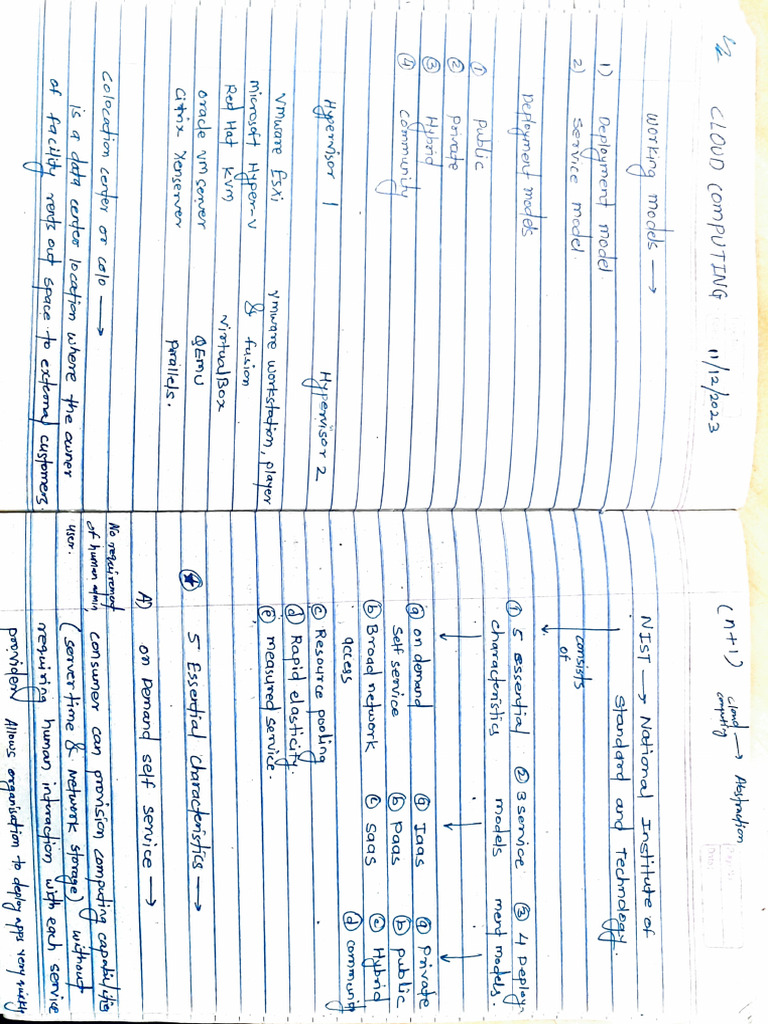 CLOUD COMPUTING 11/12/2023
Working models →
1) Deployment model
2) Service model.
Deployment models
① Public
② Private
③ Hybrid
④ Community
Hypervisor 1 Hypervisor 2
VMware Esxi Vmware workstation, player
Microsoft Hyper-V & fusion
Red Hat KVM VirtualBox
Oracle VM server QEMU
Citrix Xenserver Parallels.
Colocation center or colo →
is a data center location where the owner
of facility rents out space to external customers.
(n+1) Cloud computing → Abstraction
NIST → National Institute of
Standard and Technology.
consists
of
① 5 essential ② 3 service ③ 4 Deploy-
characteristics models ment models.
ⓐ on demand ⓐ Iaas ⓐ Private
Self service ⓑ Paas ⓑ public
ⓑ Broad network ⓒ Saas ⓒ Hybrid
access ⓓ community
ⓒ Resource pooling
ⓓ Rapid elasticity.
ⓔ measured service.
5 Essential Characteristics →
A) on Demand self service →
No requirement
of human admin
user.
consumer can provision computing capabilities
(server time & Network storage) without
requiring human interaction with each service
provider. Allows organisation to deploy apps very quickly